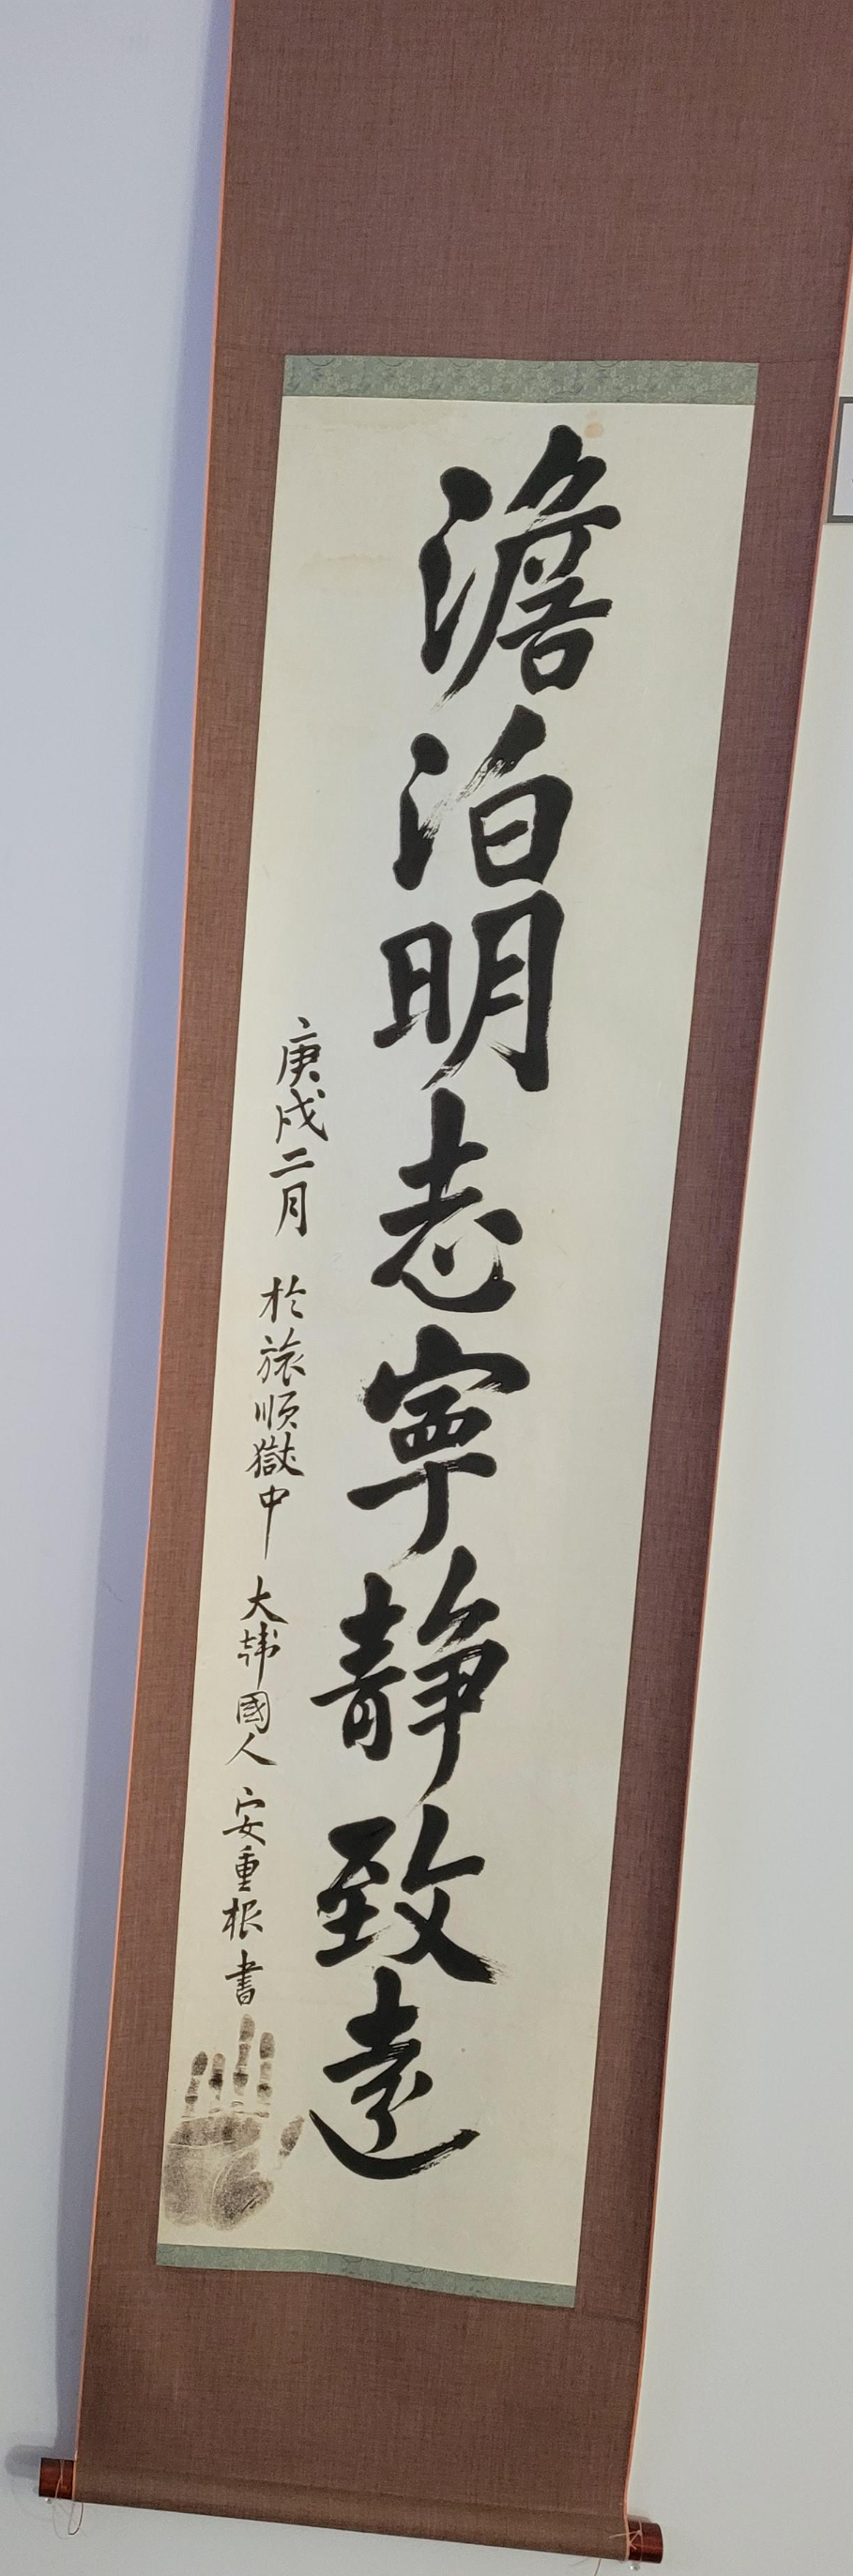 澹泊明志寧靜致遠
庚戌二月 於旅順獄中 大韓國人 安重根 書